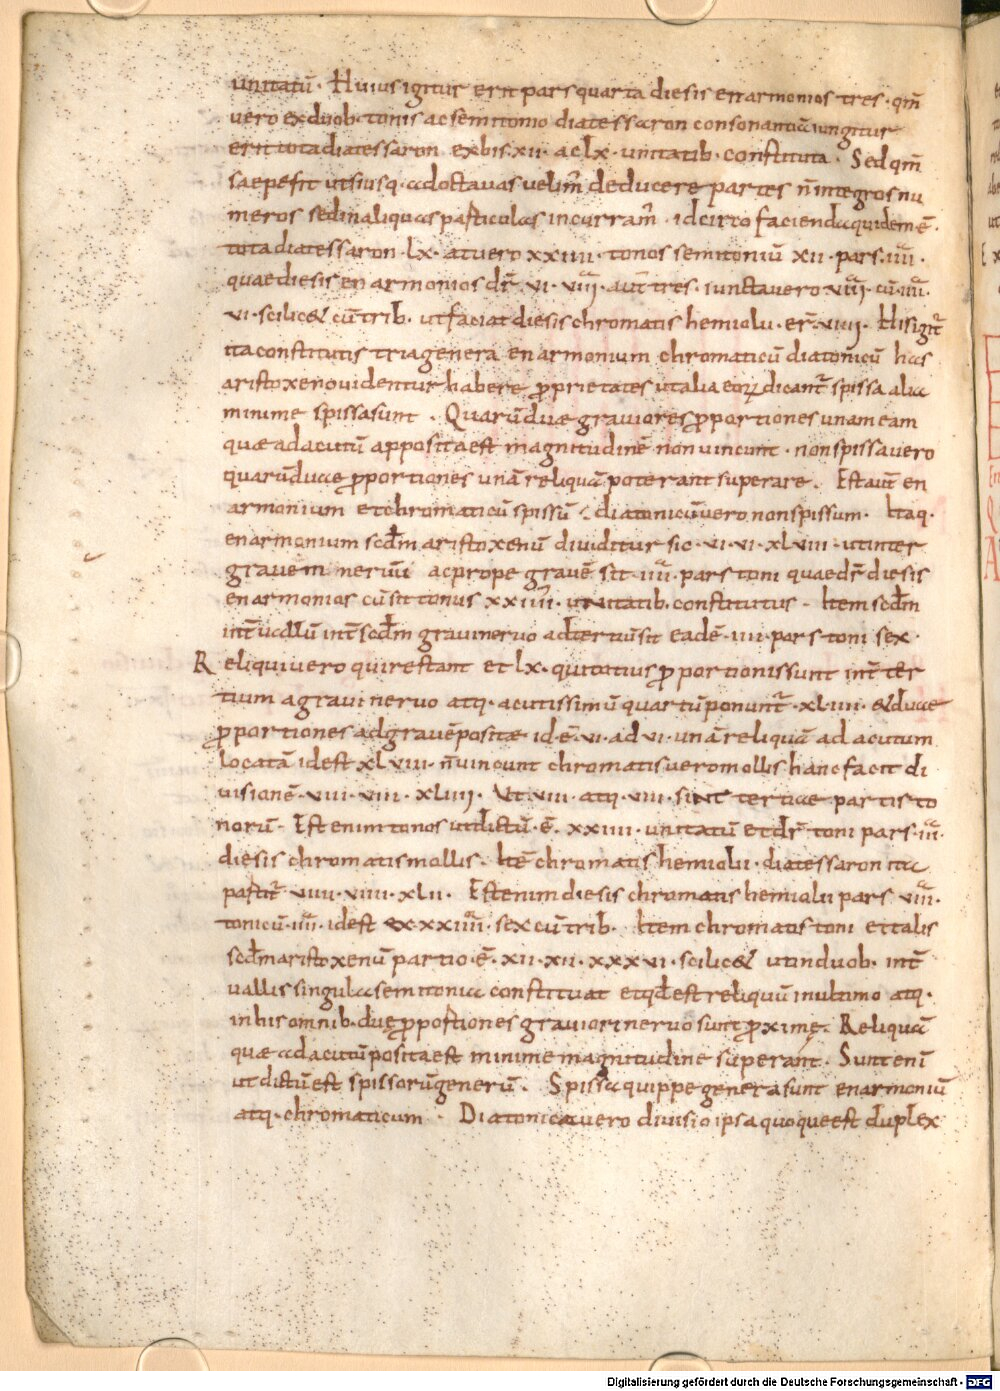 unitatū · Huius igitur erit pars quarta diesis enarmonios tres · qm̄
vero ex duob· tonis ac semitonio diatessaron consonantia iungitur
erit tota diatessaron ex bis · xii · ac lx · unitatib· constituta · Sed qm̄
saepe fit ut si usq· ad octavas velim̄ deducere partes n̄ integros nu
meros sed in aliquas particulas incurram̄ · idcirco facienda quidem ē ·
tota diatessaron · lx · at vero xxiiii · tonos semitoniū xii · pars · iiii ·
quae diesis enarmonios dr̄ · vi · viii · aūt tres · iuncta vero viii · cū · iiii ·
vi · scilic& cū trib· ut faciat diesis chromatis hemiolii · er̄ · viiii · His igit̄
ita constitutis tria genera enarmonium chromaticū diatonicū has
aristoxeno videntur habere proprietates ut alia eorum dicant̄ spissa alia
minime spissa sunt · Quarū duae graviores proportiones unam eam
quae ad acutū apposita est magnitudinē non vincunt · non spissa vero
quarū duae proportiones unā reliquā poterant superare · Est aut̄ en
armonium et chromaticū spissū · diatonicū vero non spissum · Itaq·
enarmonium scd̄m aristoxenū dividitur sic · vi · vi · xlviii · ut inter
gravem nervū ac prope gravē sit · iiii · pars toni quae dr̄ diesis
enarmonios cū sit tonus xxiiii · unitatib· constitutus · Item scd̄m
int̄vallū int̄ scd̄m gravi nervo ad tertiū sit eadē · iiii · pars toni sex ·
Reliqui vero qui restant et lx · qui totius proportionis sunt int̄ ter
tium a gravi nervo atq· acutissimū quartū ponunt̄ · xlviii · & duae
proportiones ad gravē positae id · ē · vi · ad vi · unā reliquā ad acutum
locatā id est xlviii · n̄ vincunt chromatis vero mollis hanc facit di
visionē · viii · viii · xliiii · Ut viii · atq· viii · sint tertiae partis to
norū · Est enim tonos ut dictū · ē · xxiiii · unitatū et dr̄ toni pars · iii ·
diesis chromatis mollis · Itē chromatis hemiolii · diatessaron ita
partit̄ · viiii · viiii · xlii · Est enim diesis chromatis hemiolii pars viii ·
toni cū · iiii · id est ex xxiiii · sex cū trib· Item chromatis toni et talis
scd̄m aristoxenū partio · ē · xii · xii · xxxvi · scilic& ut in duob· int̄
vallis singula semitonia constituat et qd̄ est reliquū in ultimo atq·
in his omnib· duę proportiones graviori nervo sunt proximę · Reliquā
quae ad acutū posita est minime magnitudine superant · Sunt enī
ut dictū est spissorū generū · Spissa quippe genera sunt enarmoniū
atq· chromaticum · Diatonica vero divisio ipsa quoque est duplex
Digitalisierung gefördert durch die Deutsche Forschungsgemeinschaft - DFG